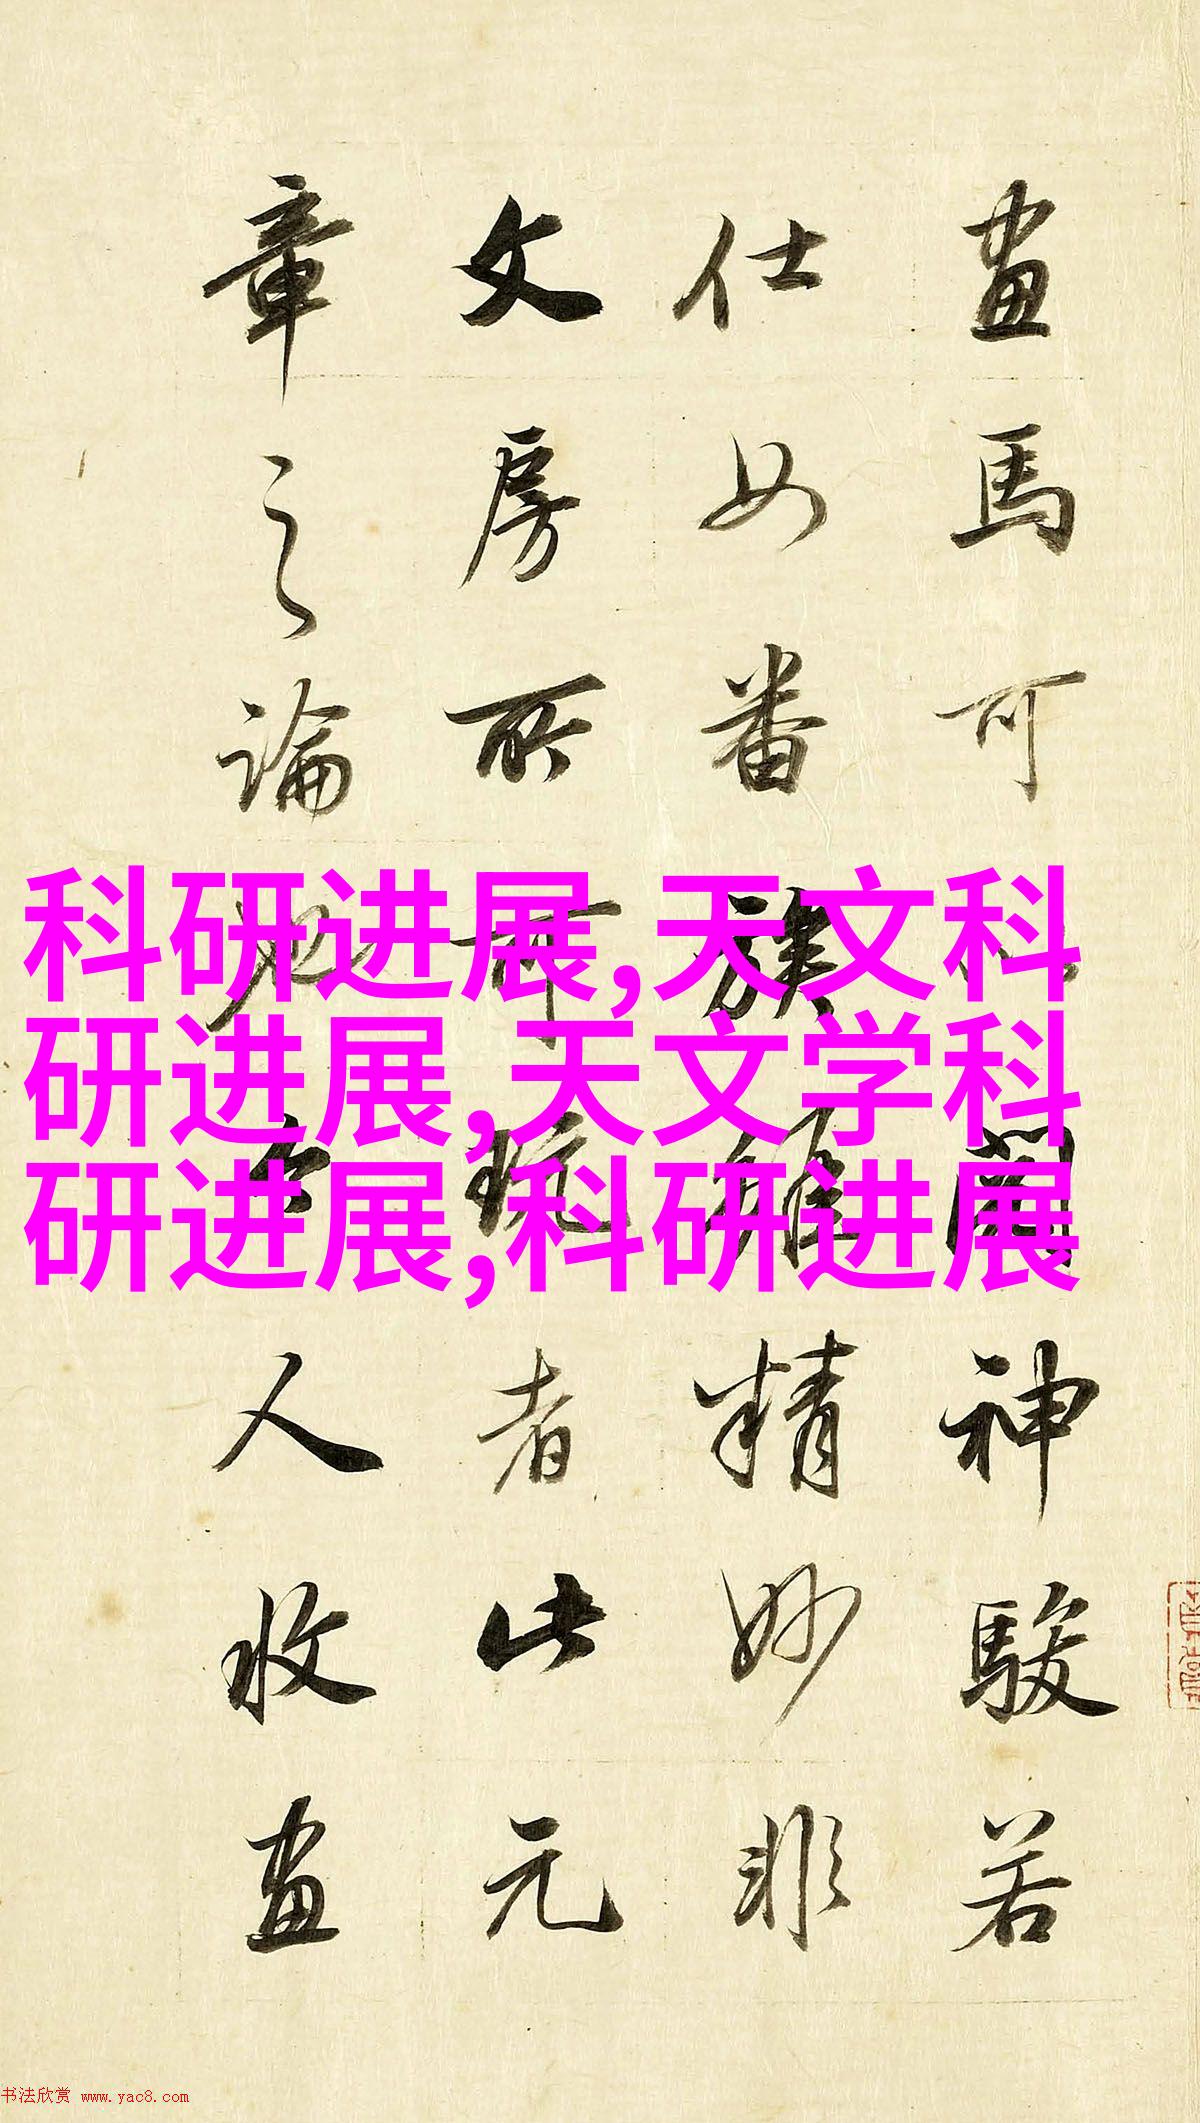 畫馬可閱神駿若
仕女番族雖精妙非
文房所可玩者此元
章之論也今人收畫
科研进展,天文科
研进展,天文学科
研进展,科研进展
书法欣赏 www.yac8.com